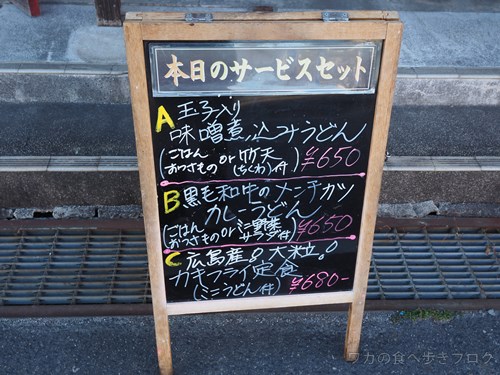 本日のサービスセット
A 玉子入り
味噌煮込みうどん
(ごはん
おつけもの or 竹天(ちくわ)付) ¥650
B 黒毛和牛のメンチカツ
カレーうどん
(ごはん
おつけもの or ミニ野菜サラダ付) ¥650
C 広島産 大粒
カキフライ定食
(ミニうどん付) ¥680-
ワカの食べ歩きブログ